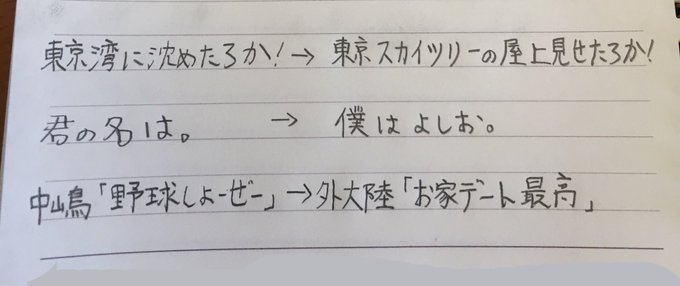 東京湾に沈めたろか!→東京スカイツリーの屋上見せたろか!
君の名は。→僕はよしお。
中嶋「野球しよーぜー」→外大陸「お家デート最高」